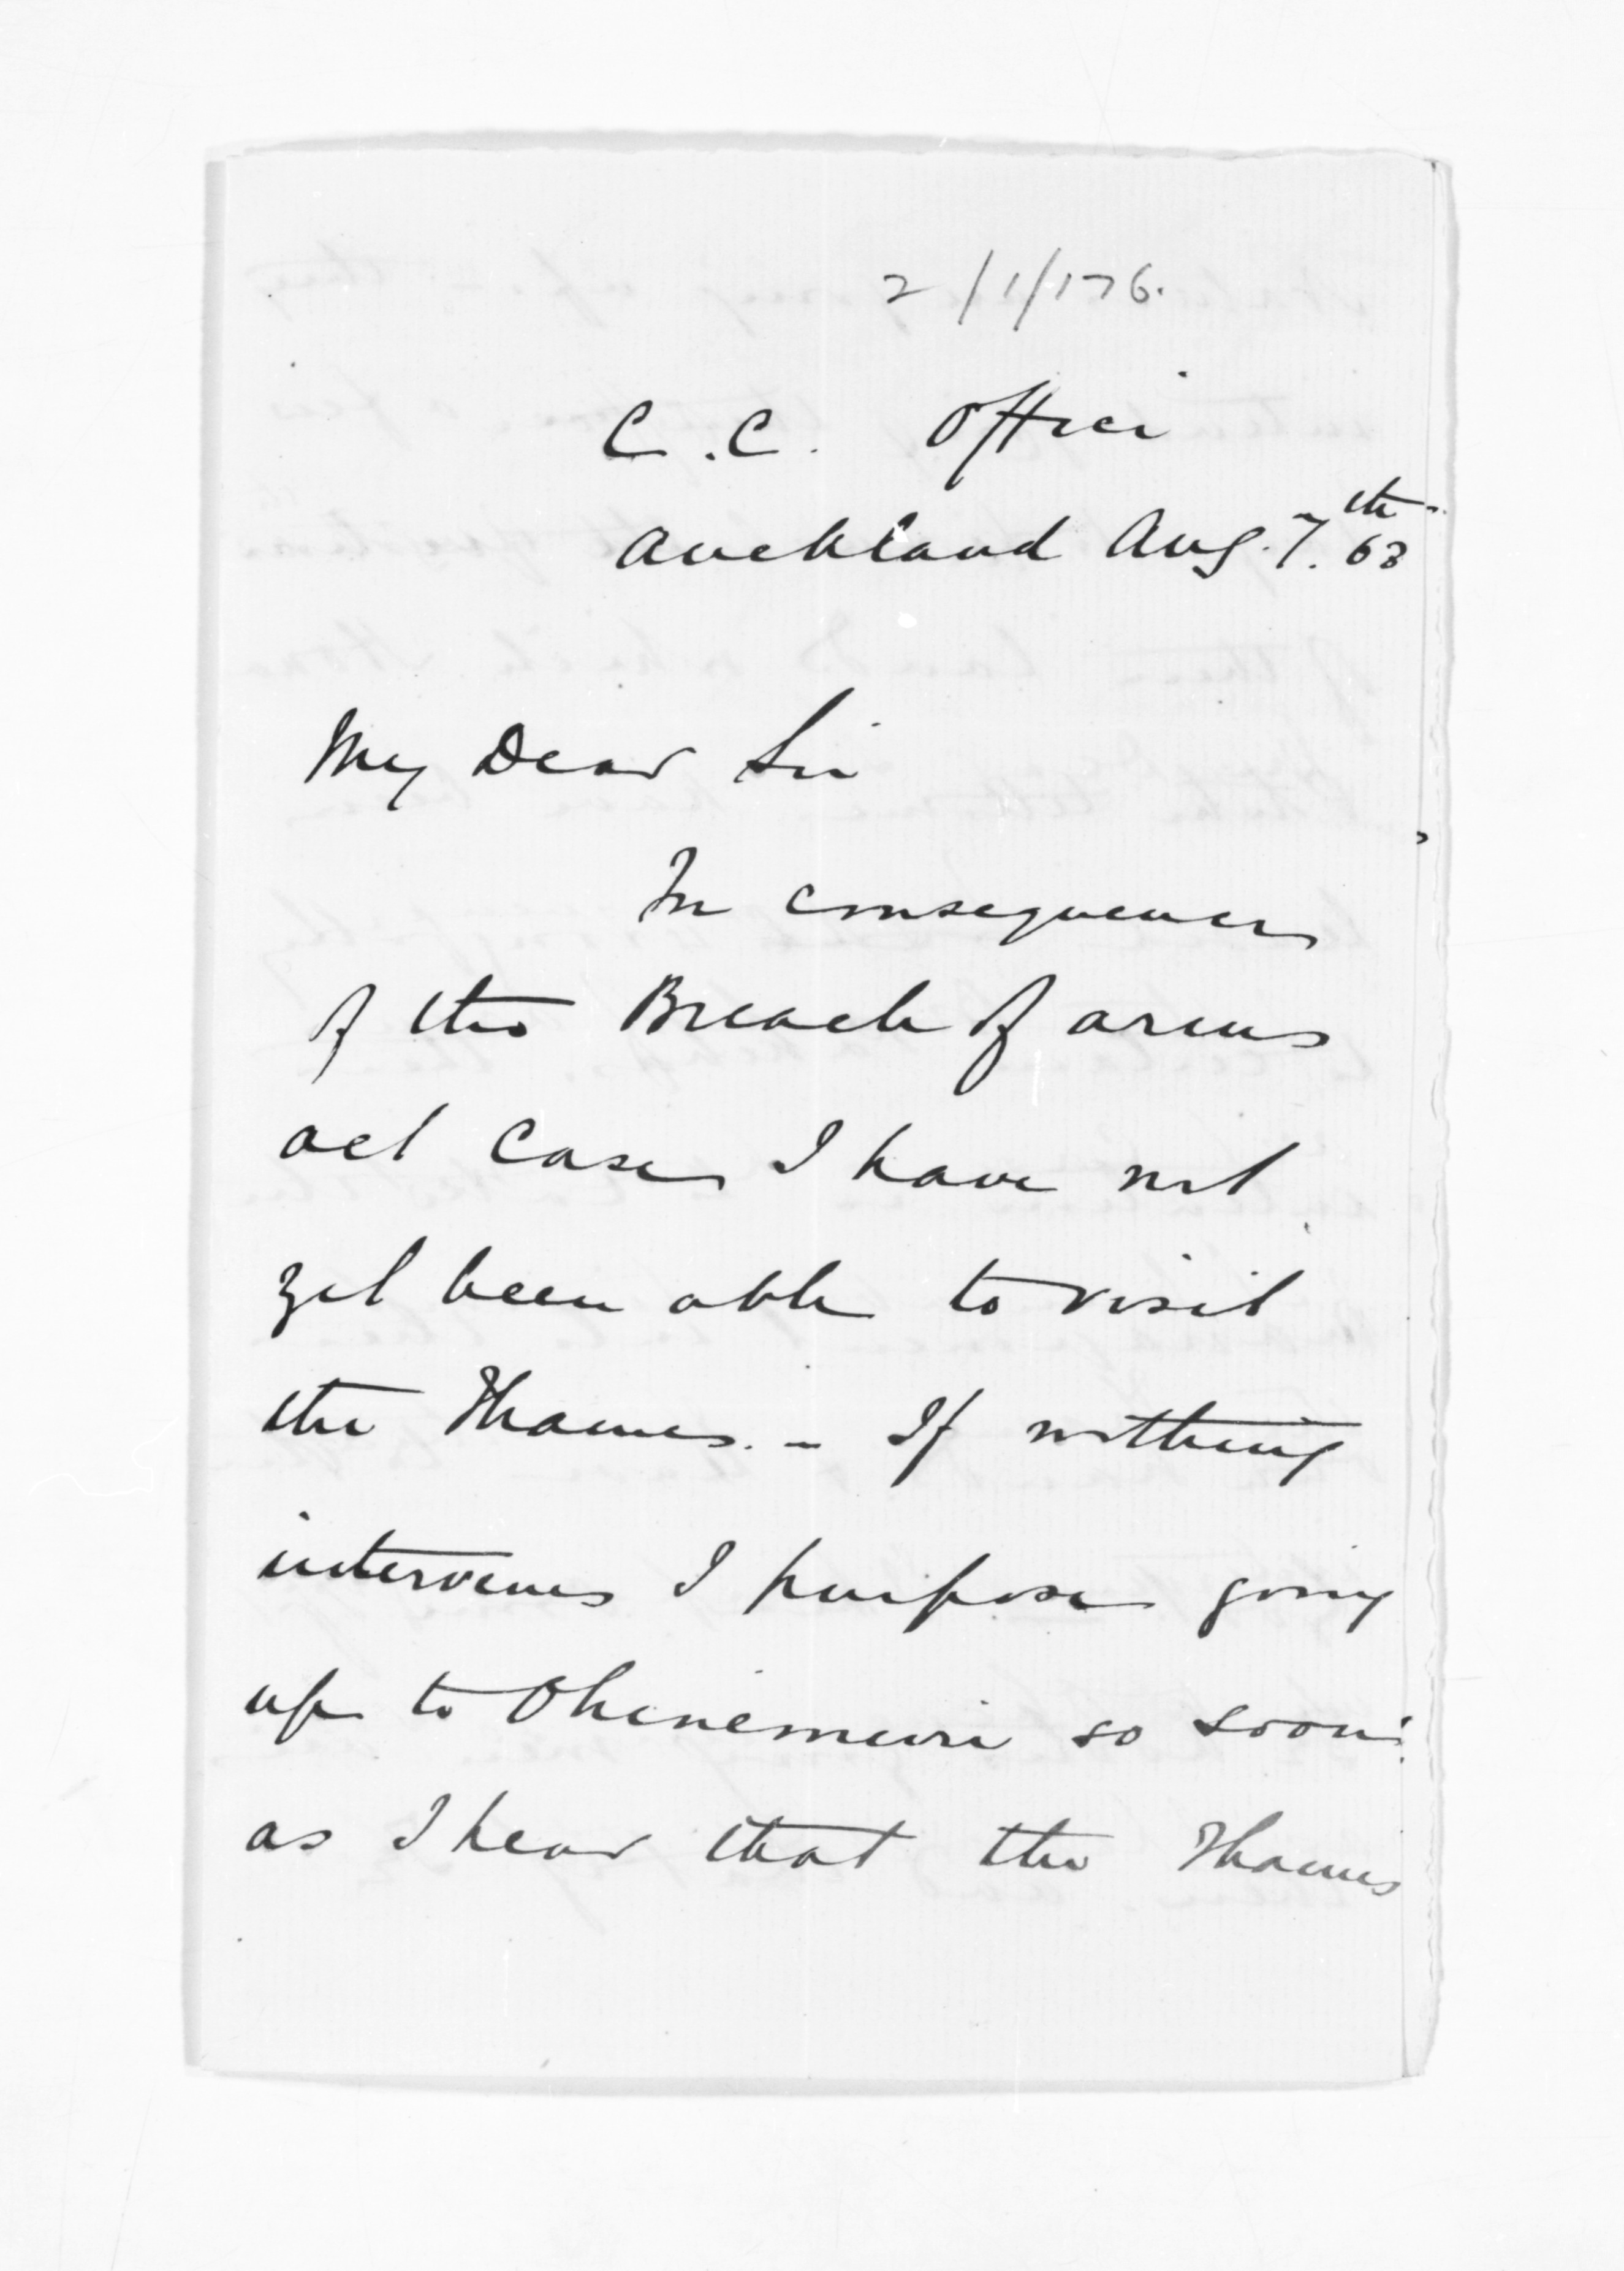 2/1/176.
C.C. Office
Auckland Aug. 7.th 63
My Dear Sir
In consequence
of the Breach of arms
act case I have not
yet been able to visit
the Thames. - If nothing
intervenes I purpose going
up to Ohinemuri so soon
as I hear that the Thames